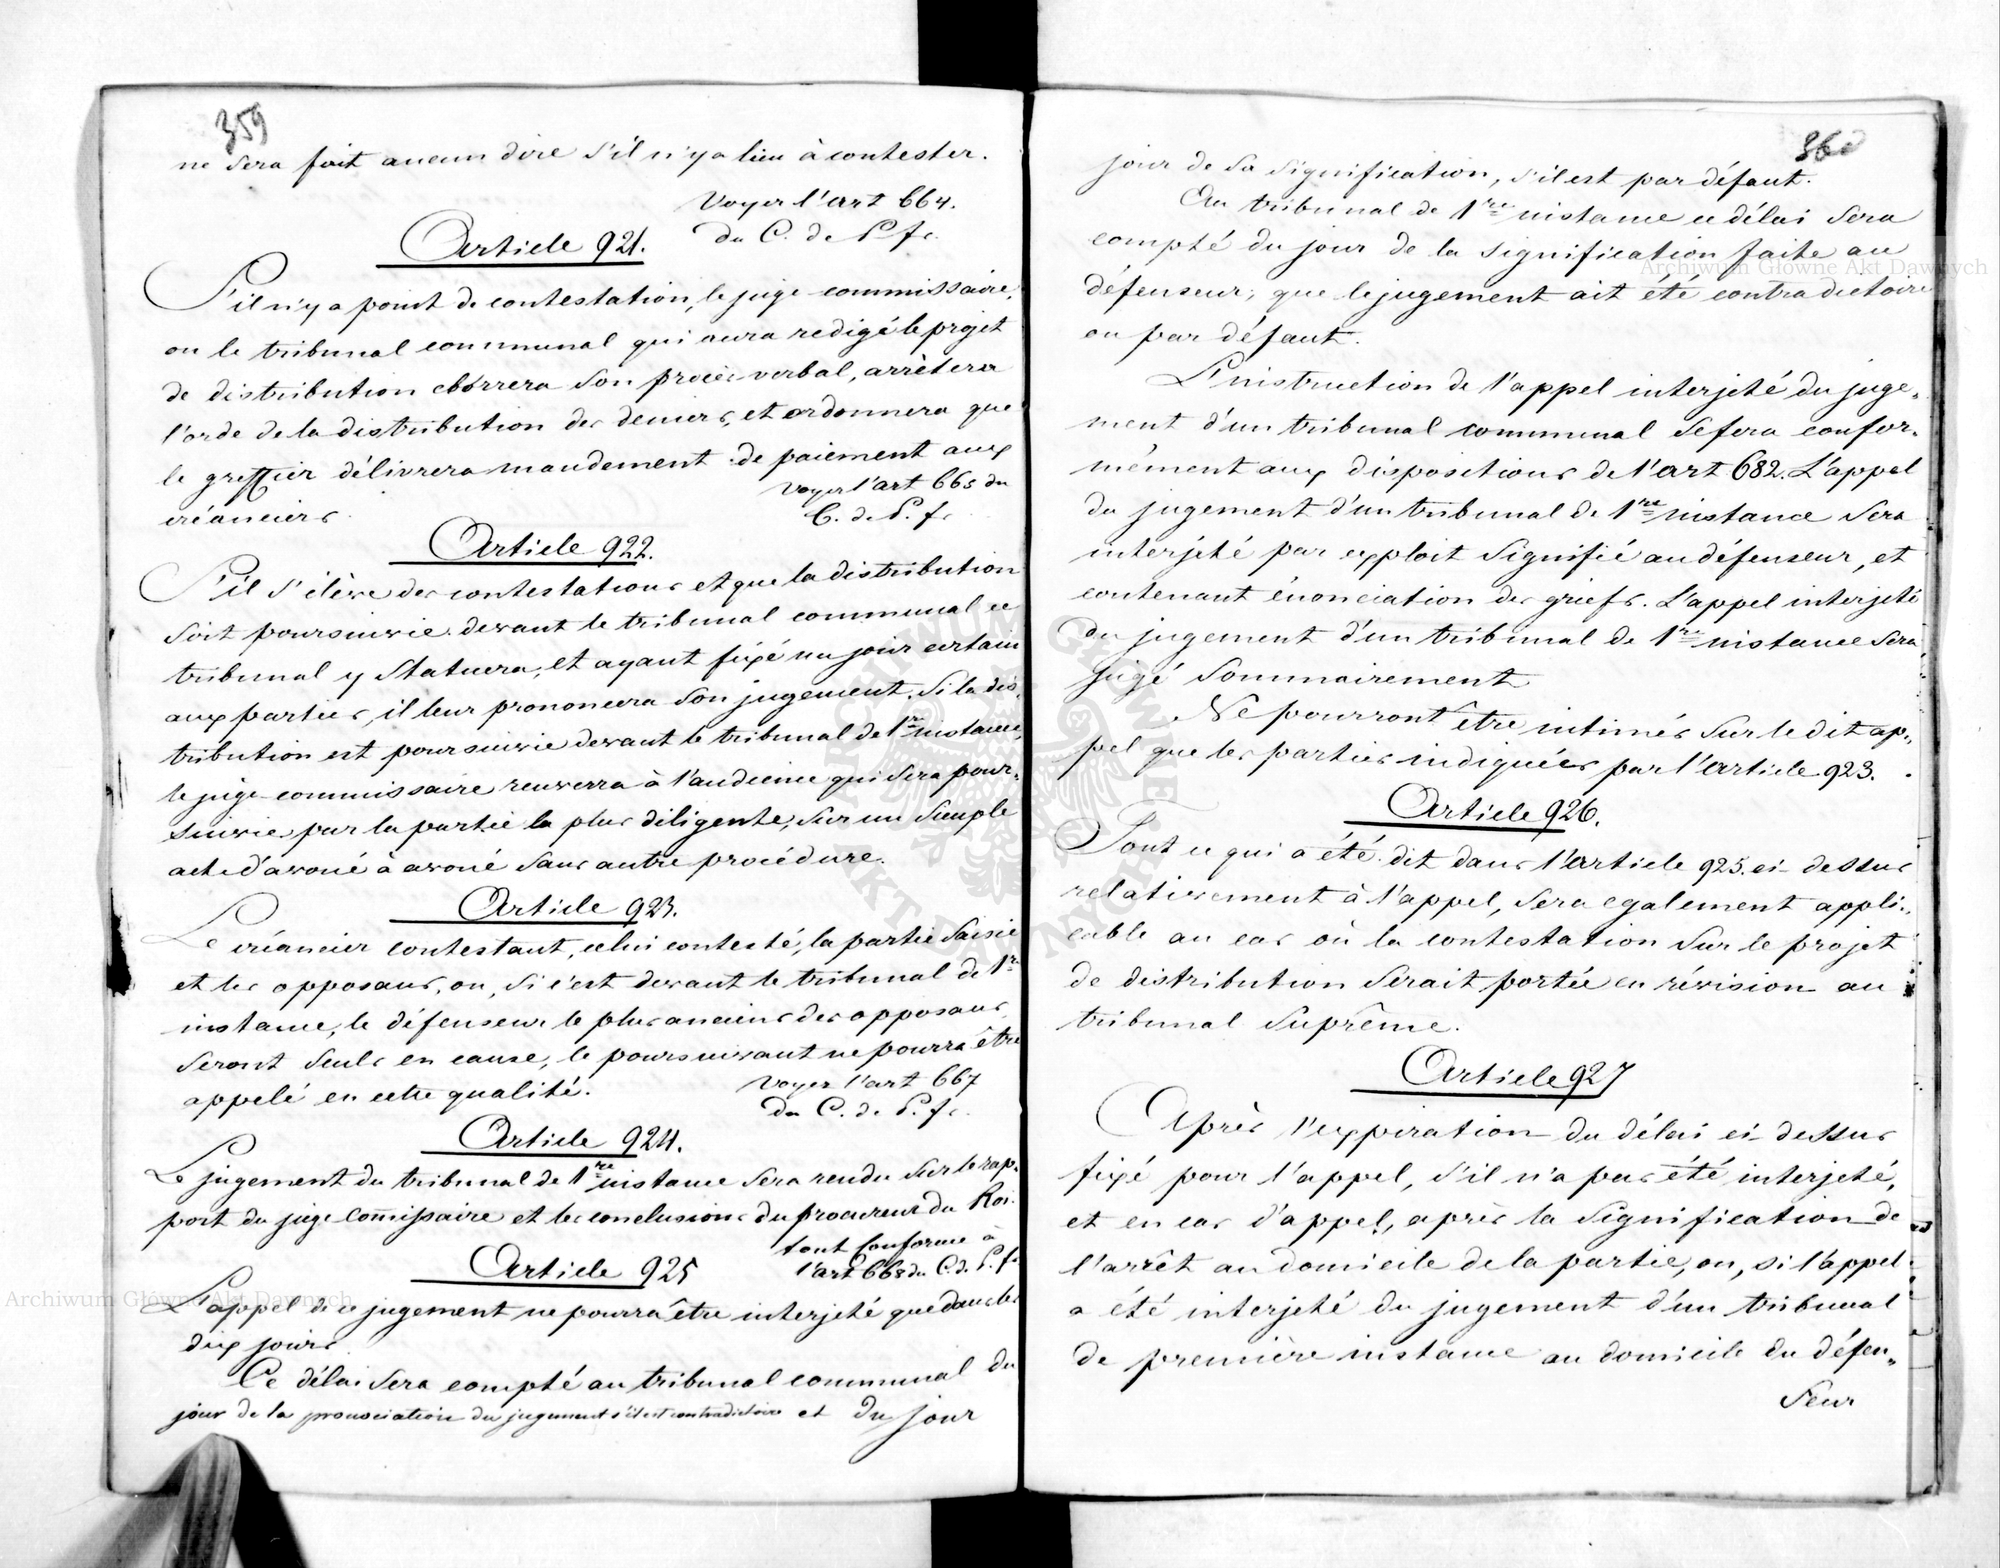 359
ne sera fait aucun dire s'il n'y a lieu à contester.
Voyez l'art 664.
du C. de P. fr.
Article 921.
S'il n'y a point de contestation, le juge commissaire,
ou le tribunal communal qui aura redigé le projet
de distribution clorrera son procès-verbal, arrêtera
l'orde de la distribution des deniers, et ordonnera que
le greffier délivrera mandement de paiement aux
créanciers.
Voyez l'art 665 du
C. de P. fr.
Article 922.
S'il s'élève des contestations et que la distribution
soit poursuivie devant le tribunal communal ce
tribunal y statuera, et ayant fixé un jour certain
aux parties, il leur prononcera son jugement. Si la dis-
tribution est poursuivie devant le tribunal de 1re instance,
le juge-commissaire renverra à l'audience qui sera pour-
suivie par la partie la plus diligente, sur un simple
acte d'avoué à avoué sans autre procédure.
Article 923.
Le créancier contestant, celui contesté, la partie saisie
et les opposans, ou, si c'est devant le tribunal de 1re
instance, le défenseur le plus anciens des opposans,
seront seuls en cause, le poursuivant ne pourra être
appelé en cette qualité.
Voyez l'art 667
du C. de P. fr.
Article 924.
Le jugement du tribunal de 1re instance sera rendu sur le rap-
port du juge Commissaire et les conclusions du procureur du Roi.
tout conforme à
l'art 668 du C. d. P. fr
Article 925
L'appel de ce jugement ne pourra être interjeté que dans les
dix jours
Ce délai sera compté au tribunal communal du
jour de la prononciation du jugement s'il est contradictoire et du jour
360
jour de sa signification, s'il est par défaut.
Au tribunal de 1re instance ce délai sera
compté du jour de la signification faite au
défenseur; que le jugement ait été contradictoire
ou par défaut.
L'instruction de l'appel interjeté du juge-
ment d'un tribunal communal se fera confor-
mément aux dispositions de l'art 682. L'appel
du jugement d'un tribunal de 1re instance sera
interjeté par exploit signifié au défenseur, et
contenant énonciation des griefs. L'appel interjeté
du jugement d'un tribunal de 1re instance sera
jugé sommairement
Ne pourront être intimés sur le dit ap-
pel que les parties indiquées par l'Article 923.
Article 926.
Tout ce qui a été dit dans l'article 925. ci-dessus
relativement à l'appel, sera egalement appli-
cable au cas où la contestation sur le projet
de distribution serait portée en révision au
tribunal Suprême.
Article 927
Après l'expiration du délai ci-dessus
fixé pour l'appel, s'il n'a pas été interjeté,
et en cas d'appel, après la signification de
l'arrêt au domicile de la partie, ou, si l'appel
a été interjeté du jugement d'un tribunal
de première instance au domicile du défen-
seur
Archiwum Główne Akt Dawnych
Archiwum Główne Akt Dawnych
ARCHIWUM GŁÓWNE AKT DAWNYCH